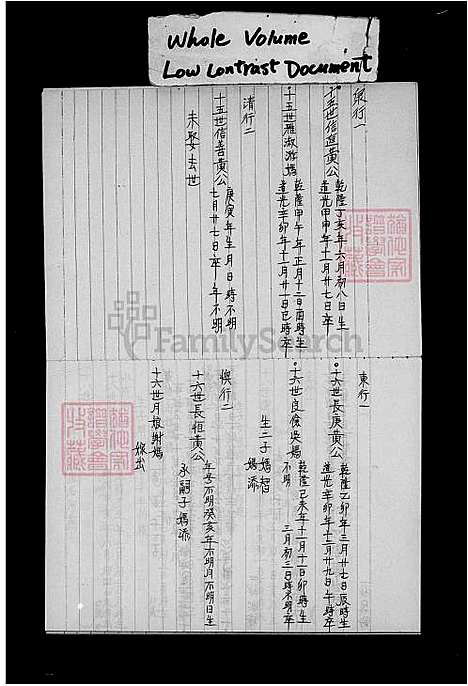 Whole Volume
Low Contrast Document
長行一
十五世信進黃公
乾隆丁亥年六月初八日生
道光甲申年十一月廿七日卒
十五世雅淑游媽
乾隆甲午年正月十二日酉時生
道光辛卯年十一月廿一日巳時卒
清行二
十五世信善黃公
庚寅年生月日時不明
七月廿七日卒年不明
未娶去世
東行一
十六世長庚黃公
乾隆乙卯年三月廿七日辰時生
道光辛卯年十二月廿九日午時卒
十六世良儉吳媽
乾隆己未年十一月十一日卯時生
不明 三月初三日時不明卒
生二子媽
媽添
行二
十六世長恒黃公
年号不明癸亥年不明月不明日生
承嗣子媽添
十六世月娘謝媽
嫁出
FamilySearch